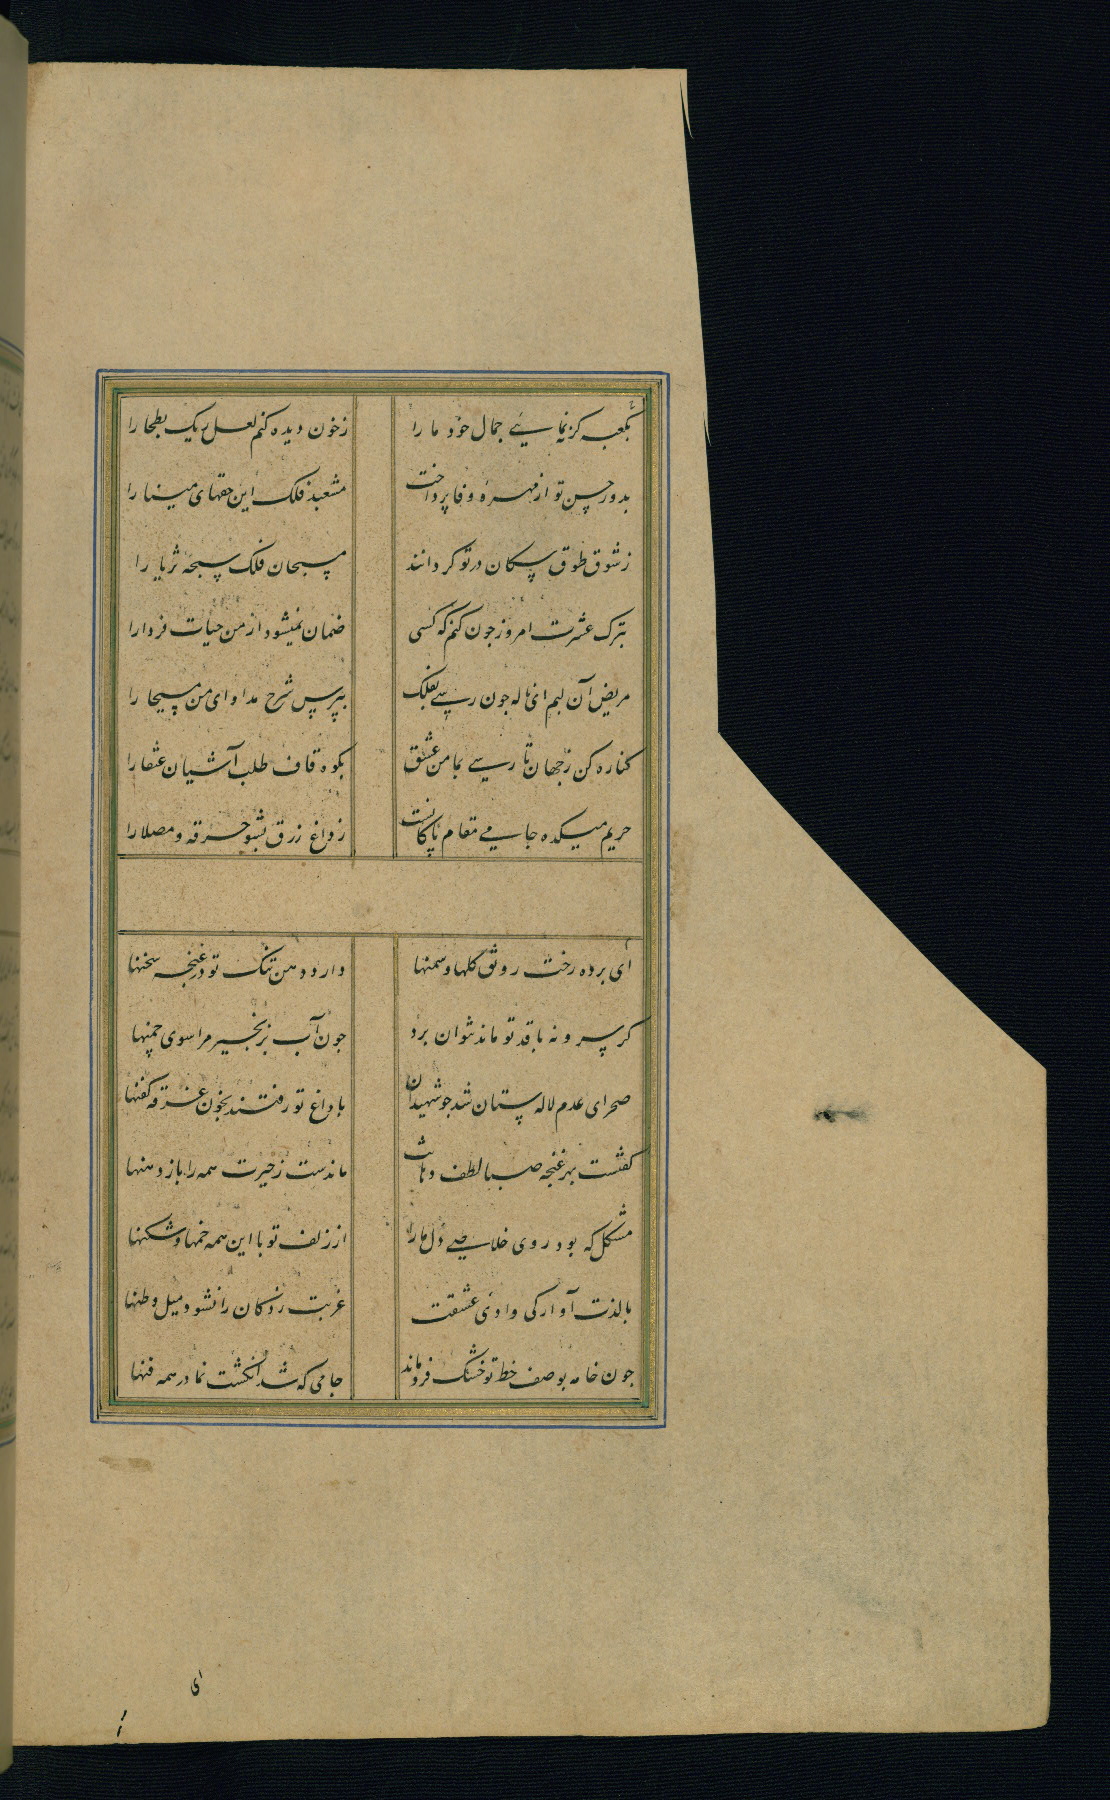 بکعبه کر نمایی جمال خود ما را زخون دیده کنم لعل ریک بطحا را
بدور حسن تو از مهره وفا پرداخت مشعبد فلک این حقهای مینا را
زشوق طوق سکان در تو کردانند مسبحان فلک سبحه ثریا را
بترک عشرت امروز جون کنم که کسی ضمان نمیشود از من حیات فردا را
مریض آن لبم ای ناله جون رسی بفلک بپرس شرح مداوای من مسیحا را
کناره کن زجهان تا رسی بمامن عشق بکوه قاف طلب آشیان عنقا را
حریم میکده جامی مقام پاکانست زداغ زرق بشو خرقه و مصلا را
ای برده رخت رونق کلها و سمنها دارد دهن تنک تو در غنجه سخنها
کر سرو نه با قد تو ماند نتوان برد جون آب بزنجیر مرا سوی جمنها
صحرای عدم لاله ستان شد جو شهیدان با داغ تو رفتند بخون غرقه کفنها
کفتست بهر غنجه صبا لطف دهانت ماندست زحیرت همه را باز دهنها
مشکل که بود روی خلاصی دل ما را از زلف تو با این همه خمها و شکنها
با لذت آوارکی وادی عشقت غربت زدکان را نشود میل وطنها
جون خامه بوصف خط تو خشک فرو ماند جامی که شد انکشت نما در همه فنها
ای